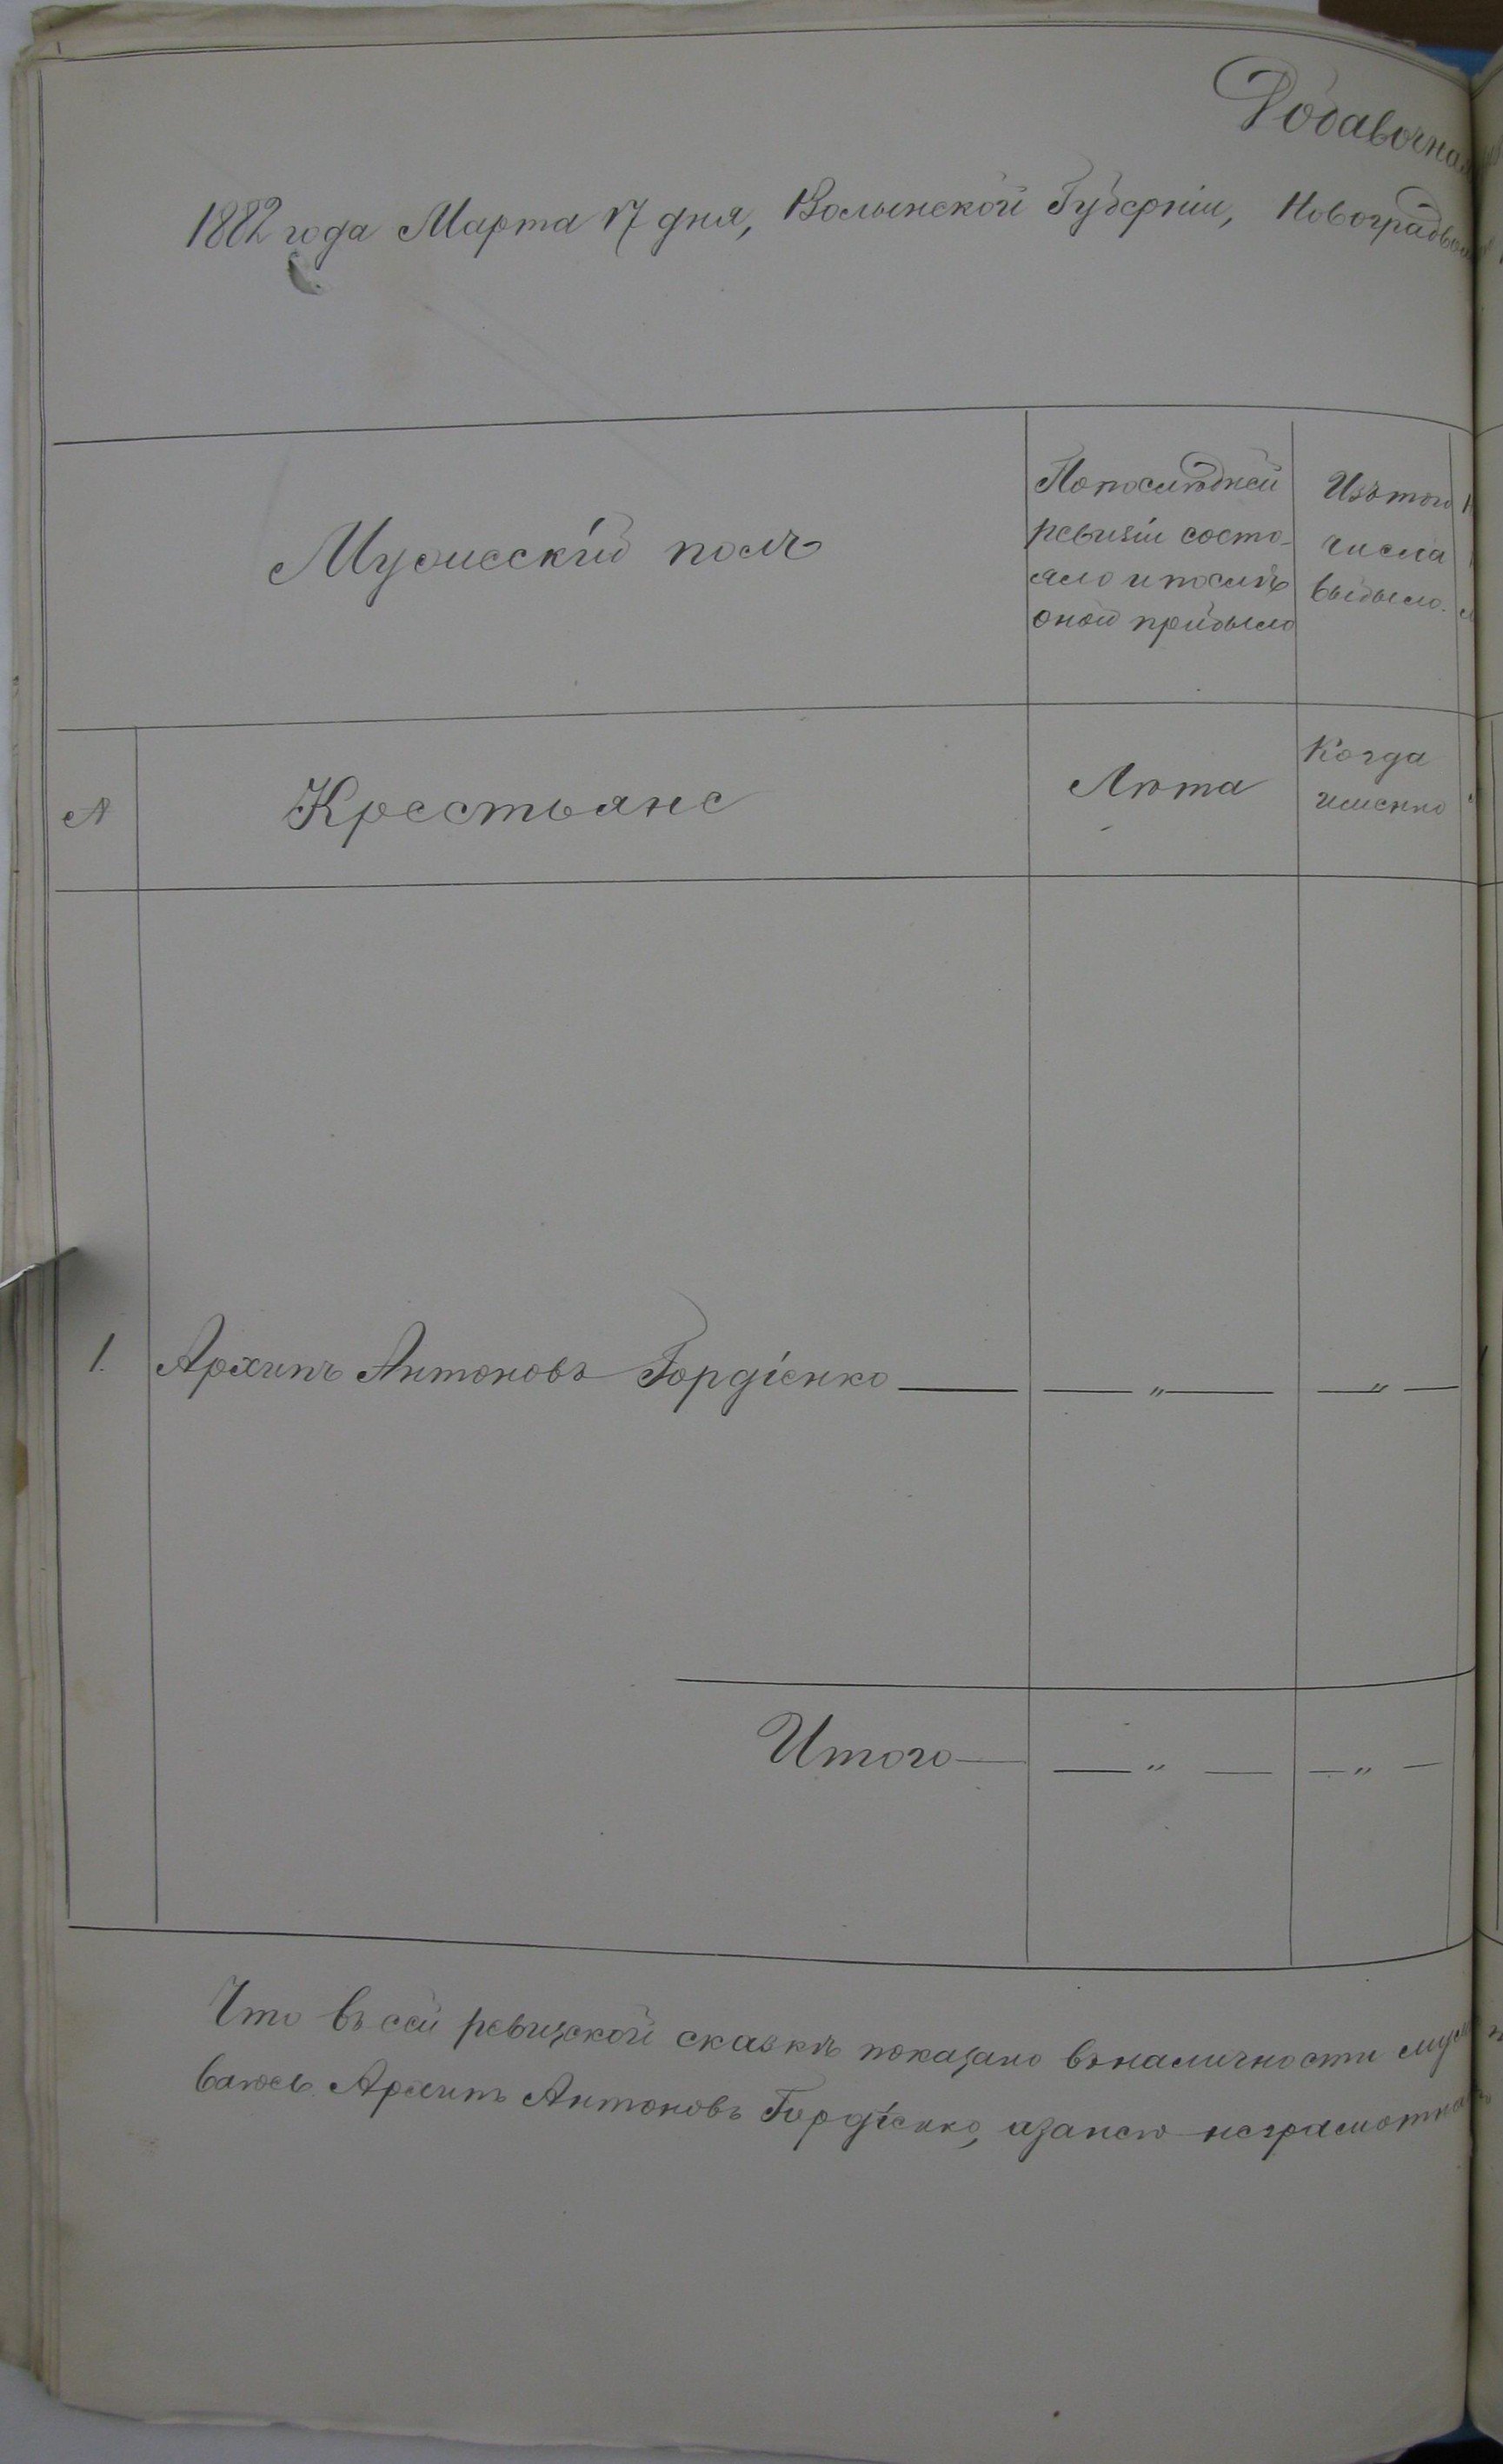 Добавочная
1882 года Марта 17 дня, Волынской Губерніи, Новоградвол
Мужескій полъ
Попослѣдней
ревизіи состо-
яло и послѣ
оной прибыло
Изътого
числа
выбыло.
№
Крестьяне
Лѣта
Когда
именно
1. Архипъ Антоновъ Гордіенко — „ — — „ —
Итого — „ — — „ —
Что въ сей ревизской сказкѣ показано вналичности
ваюсь Архипъ Антоновъ Гордіенко, азанего неграмотнаго